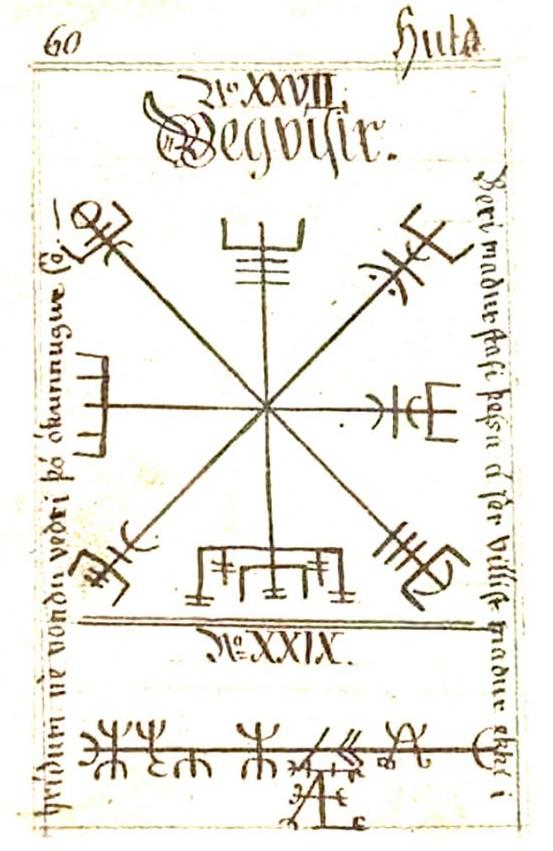 60
Huld
No XXVII.
Vegvísir.
Beri maður stafi þessa á sér villist maður ekki í
hríðum né vondu veðri þó ókunnugur sé.
No XXIX.